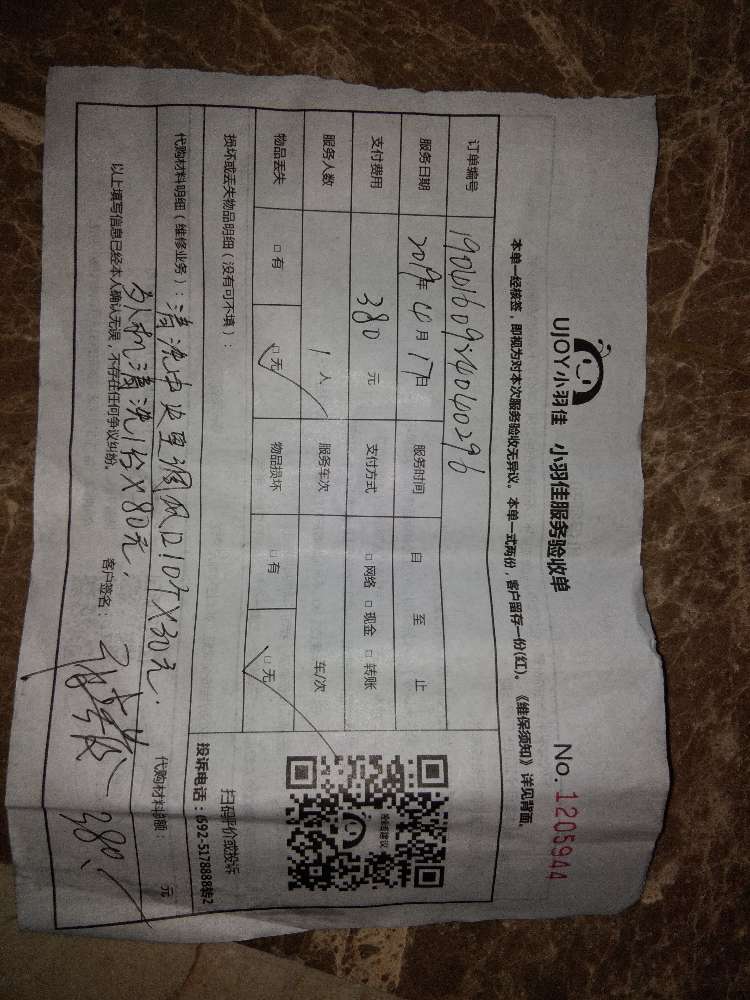 UJOY小羽佳 小羽佳服务验收单 No.1205944
本单一经核签，即视为对本次服务验收无异议。本单一式两份，客户留存一份(红)。《维保须知》详见背面。
订单编号
服务日期 2019年 4月 17日 服务时间 自 至 止
支付费用 380 元 支付方式 □ 网络 □ 现金 □ 转账
服务人数 1 人 服务车次 车/次
物品丢失 □ 有 □ 无 物品损坏 □ 有 □ 无
抢鲜建议
扫码评价或投诉
投诉电话：692-5178888转2
损坏或丢失物品明细（没有可不填）：
代购材料明细（维修业务）：清洗中央空调风口10个X30元. 代购材料总额： 元
外机清洗1台X80元, 380
以上填写信息已经本人确认无误，不存在任何争议纠纷。 客户签名：